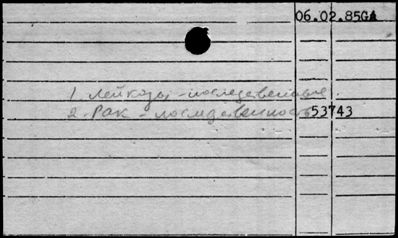 06.02.85GA
1 Лейкозы - последственные.
2. Рак - последственность 53743